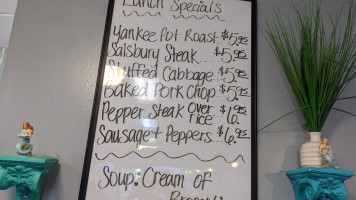 Lunch Specials
Yankee Pot Roast $5.95
Salsbury Steak....$5.95
Stuffed Cabbage...$5.95
Baked Pork Chop.$5.95
Pepper Steak Over Rice...$6.95
Sausage + Peppers...$6.95
Soup. Cream of